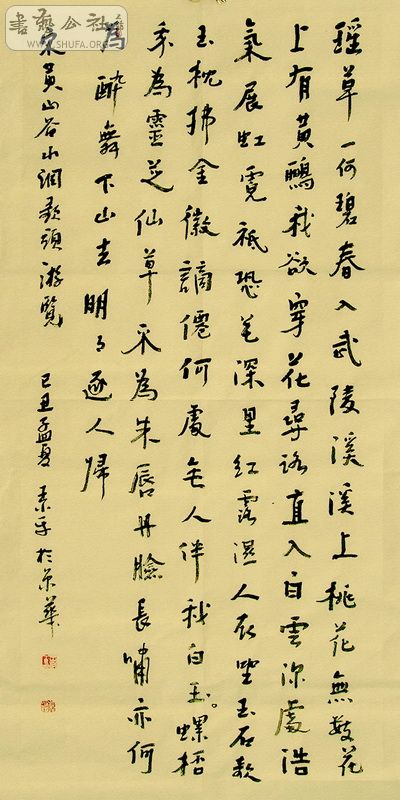 瑶草一何碧春入武陵溪溪上桃花無數花
上有黃鸝我欲穿花尋路直入白雲深處浩
氣展虹霓祇恐花深里紅露濕人衣坐玉石欹
玉枕拂金徽謫僊何處無人伴我白玉。螺桮
我為靈芝仙草不為朱唇丹臉長嘯亦何
為醉舞下山去明月逐人歸
录黃山谷水調歌頭游覽 己丑孟夏 於京華
書藝公社
WWW.SHUFA.ORG